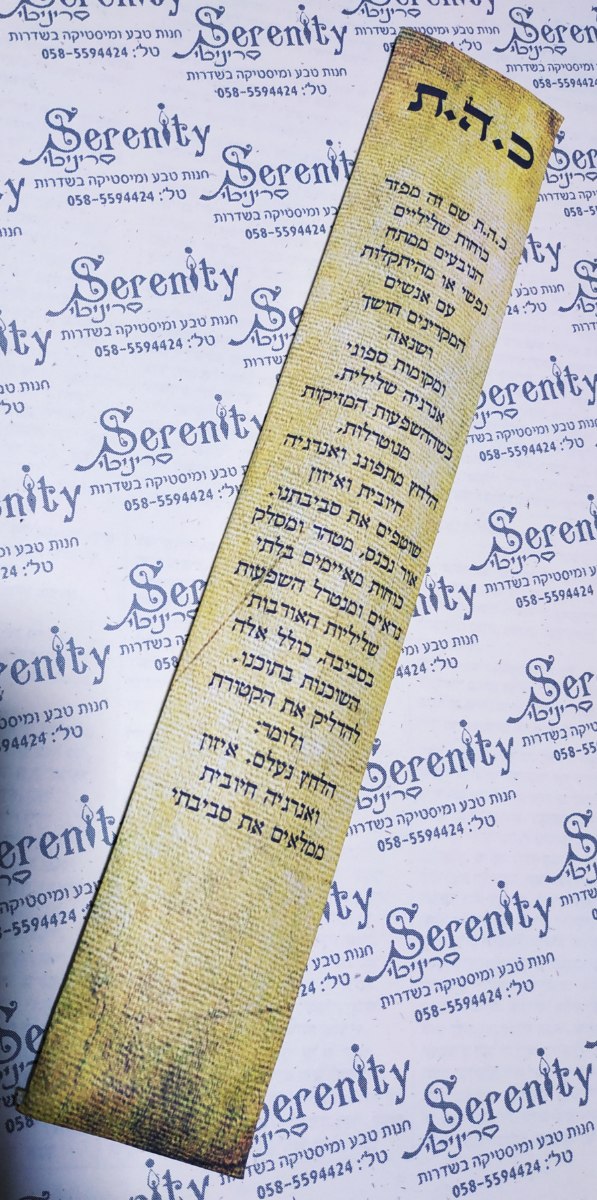 כ.ה.ת
כ.ה.ת שם זה מפזר
כוחות שליליים
הנובעים ממתח
נפשי או מהיתקלות
עם אנשים
המקרינים חושך
ושנאה
ומקומות ספוגי
אנרגיה שלילית.
כשההשפעות המזיקות
מנוטרלות,
הלחץ מתפוגג ואנרגיה
חיובית ואיזון
שוטפים את סביבתנו.
אור נכנס, מטהר ומסלק
כוחות מאיימים בלתי
נראים ומנטרל השפעות
שליליות האורבות
בסביבה, כולל אלה
השוכנות בתוכנו.
להדליק את הקטורת
ולומר:
הלחץ נעלם. איזון
ואנרגיה חיובית
ממלאים את סביבתי
Serenity
סריניטי
חנות טבע ומיסטיקה בשדרות
טל': 058-5594424